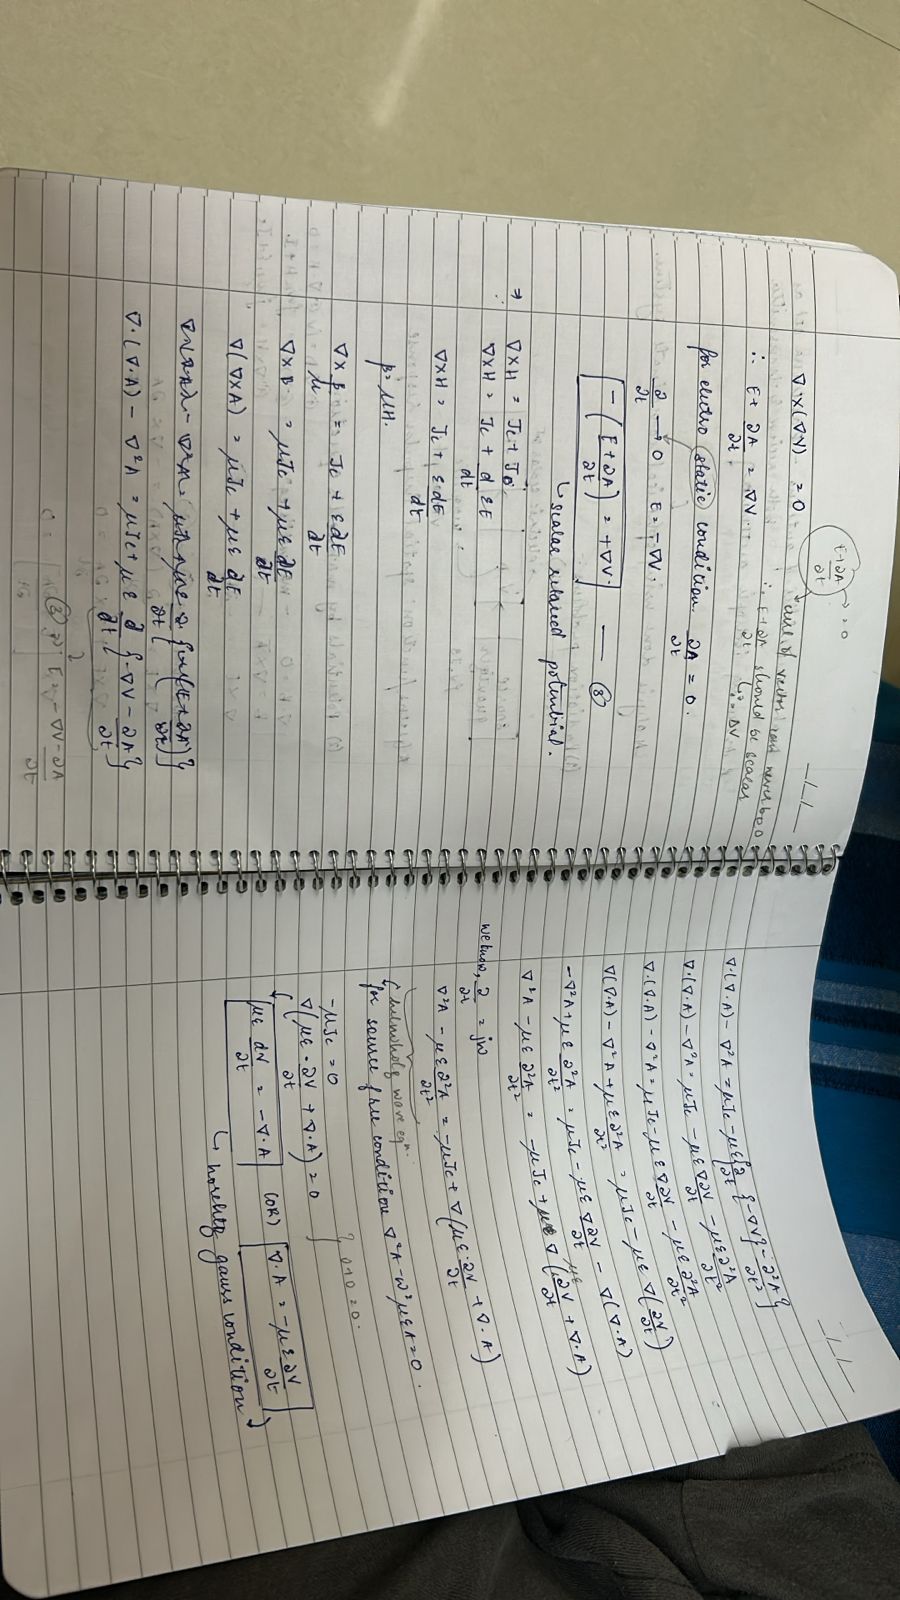 E+∂A/∂t → = 0
∇×(∇V) = 0
↘ curl of vector can never be 0
∴ E+∂A/∂t should be scalar
∴ E + ∂A/∂t = ∇V
↳ ∴ ∆V
for electro static condition. ∂A/∂t = 0.
∂/∂t → 0 E = -∇V.
-(E+∂A/∂t) = +∇V. —— ③
↳ scalar retared potenbial.
⇒ ∇×H = Jc + JD
∴ ∇×H = Jc + d/dt εE
∇×H = Jc + εdE/dt
β = μH.
∇×β/μ = Jc + ε∂E/∂t
∇×B = μJc + με ∂E/∂t
∇(∇×A) = μJc + με ∂E/∂t
∇.(∇.A) - ∇²A = μJc + με ∂/∂t {-∇V - ∂A/∂t}
③ ⇒ E = -∇V-∂A/∂t
∇.(∇.A) - ∇²A = μJc - με{∂/∂t {-∇V} - ∂²A/∂t²}
∇.(∇.A) - ∇²A = μJc - με ∇∂V/∂t - με∂²A/∂t²
∇.(∇.A) - ∇²A = μJc - με ∇∂V/∂t - με ∂²A/∂t²
∇(∇.A) - ∇²A + με ∂²A/∂t² = μJc - με ∇(∂V/∂t)
-∇²A + με ∂²A/∂t² = μJc - με ∇∂V/∂t - ∇(∇.A)
∇²A - με ∂²A/∂t² = -μJc + ∇(με ∂V/∂t + ∇.A)
we know, ∂/∂t = jω
∇²A - με∂²A/∂t² = -μJc + ∇(με.∂V/∂t + ∇.A)
↳ helmholtz wave eqn.
for source free condition ∇²A - ω²μεA = 0.
-μJc = 0
∇(με.∂V/∂t + ∇.A) = 0
} 0+0 = 0.
με dV/∂t = -∇.A (OR) ∇.A = -με∂V/∂t
↳ gauss condition